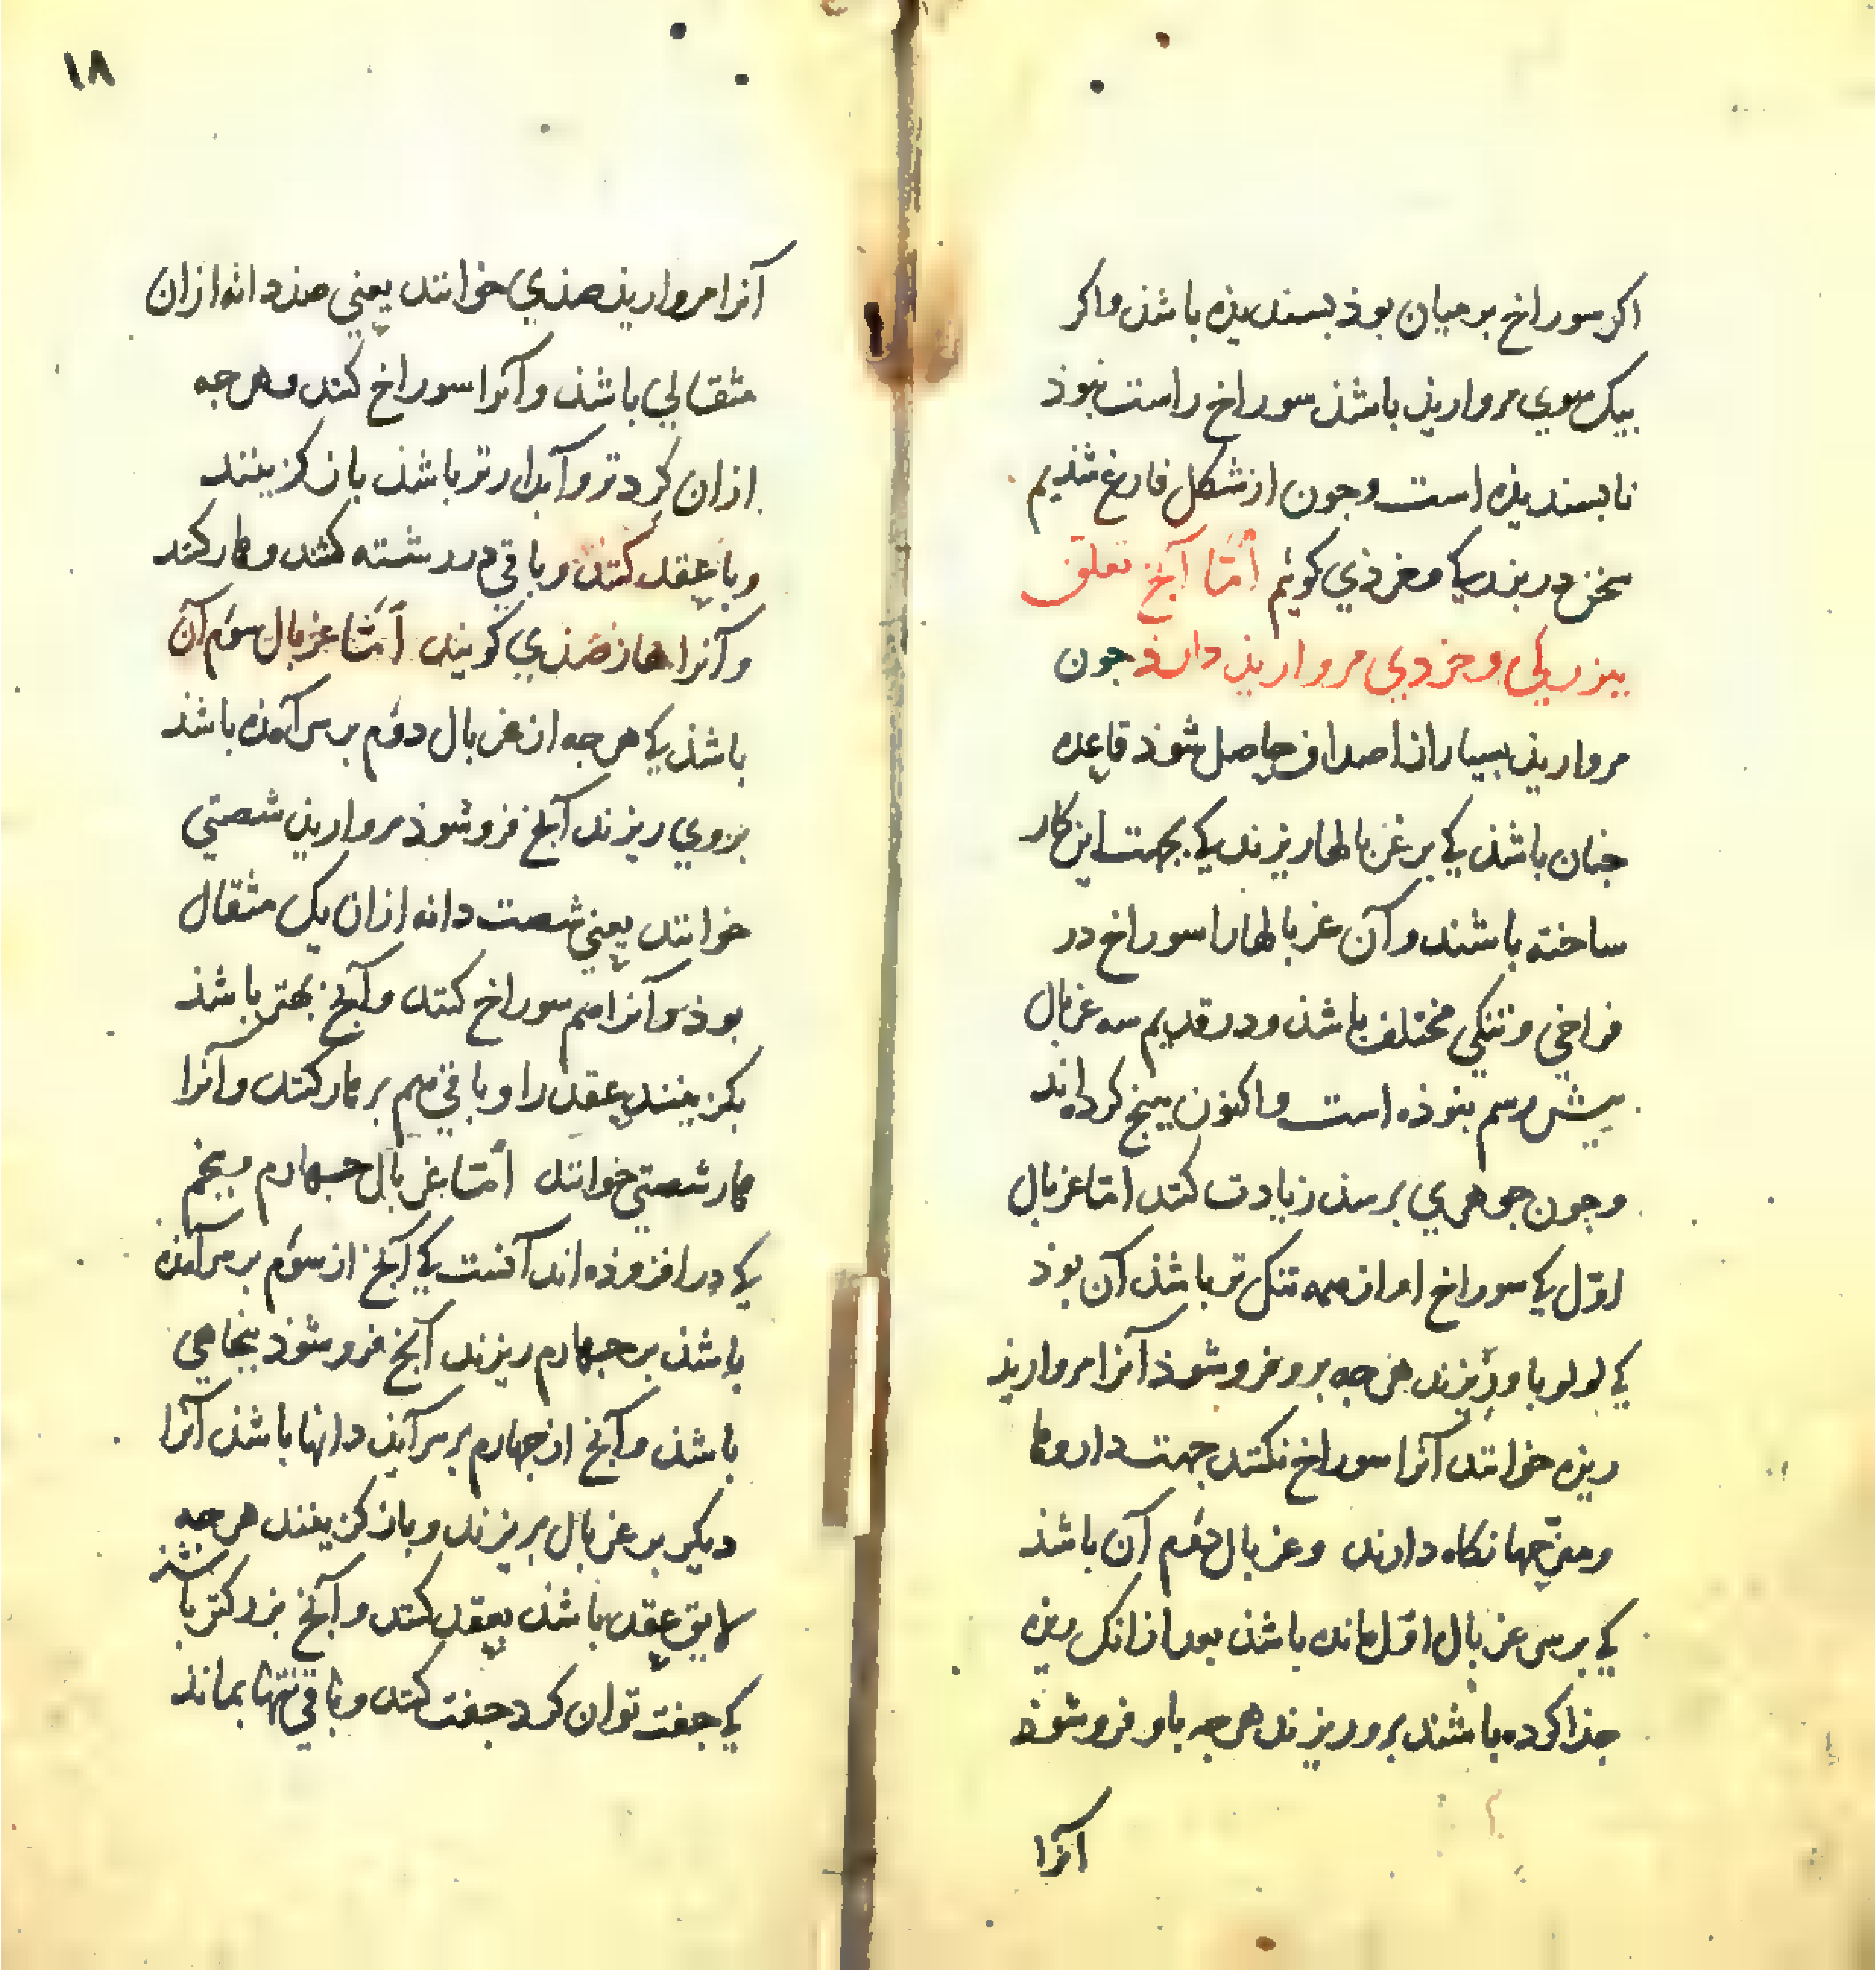 اکر سوراخ بر میان بوذ بسندیذه باشذ واکر
بیک سوی مرواریذ باشذ سوراخ راست نبوذ
نابسندیذه است وجون از شکل فارغ شذیم
سخن در بزرکی وخرذی کوئیم امّا آنج تعلق
ببزرکی وخردی مرواریذ دارذ جون
مرواریذ بسیار از اصداف حاصل شوذ قاعده
جنان باشذ کی بر غربالها ریزند کی بجهت این کار
ساخته باشند وآن غربالها را سوراخ در
فراخی وتنکی مختلف باشذ ودر قدیم سه غربال
بیش رسم نبوذه است واکنون بنج کرده‌اند
وجون جوهری برسذ زیادت کنند امّا غربال
اوّل کی سوراخ او از همه تنک تر باشذ آن بوذ
کی لولو باو ریزند هرجه برو فرو شوذ آنرا مرواریذ
ریزه خوانند آنرا سوراخ نکنند جهت داروها
ومفرّحها نکاه دارند وغربال دوّم آن باشذ
کی بر سر غربال اوّل مانده باشذ بعد ازانک ریزه
جذا کرده باشند برو ریزند هرجه باو فرو شوذ
آنرا
١٨
آنرا مرواریذ صذی خوانند یعنی صذ دانه ازان
مثقالی باشذ وآنرا سوراخ کنند وهرجه
ازان کردتر وآبدارتر باشذ باز کزینند
وبا عقد کنند وباقی در رشته کشند وهار کنند
وآنرا هار صذی کویند امّا غربال سوّم آن
باشذ کی هرجه از غربال دوّم بر سر آمذه باشذ
بروی ریزند آنج فرو شوذ مرواریذ شصتی
خوانند یعنی شصت دانه ازان یک مثقال
بوذ وآنرا هم سوراخ کنند وآنج بهتر باشذ
بکزینند عقد را وباقی هم بر هار کنند وآنرا
هار شصتی خوانند امّا غربال جهارم وبنجم
کی در افزوذه اند آنست کی آنج از سوّم بر سر آمذه
باشذ بر جهارم ریزند آنج فرو شوذ بنجاهی
باشذ وآنج از جهارم بر سر آیذ دانها باشذ آنرا
دیکر بر غربال بریزند وباز کزینند هرجه
لایق عقد باشذ بعقد کنند وآنج بزرکتر باشذ
کی جفت توان کرد جفت کنند وباقی تنها بماند